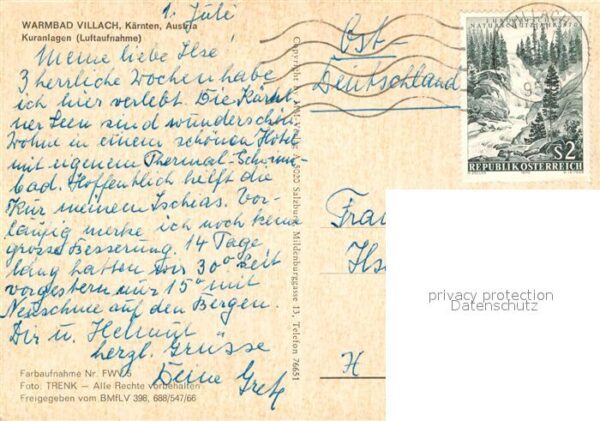 WARMBAD VILLACH, Kärnten, Austria
Kuranlagen (Luftaufnahme)
1. Juli
Meine liebe Ilse!
3 herrliche Wochen habe
ich hier verlebt. Die Kärnt
ner Seen sind wunderschön
Wohne in einem schönen Hotel
mit eigenem Thermal-Schwimm
bad. Hoffentlich hilft die
Kur meinen Ischias. Vor-
läufig merke ich noch keine
grosse Besserung. 14 Tage
lang hatten wir 30° seit
vorgestern nur 15° mit
Neuschnee auf den Bergen.
Dir u. Helmut
herzl. Grüsse
Deine Grete
Farbaufnahme Nr. FWV 5
Foto: TRENK — Alle Rechte vorbehalten
Freigegeben vom BMfLV 398, 688/547/66
Copyright by
5020 Salzburg, Mildenburggasse 13, Telefon 76651
Ost-
Deutschland
NATURSCHUTZJAHR 1970
S2
REPUBLIK ÖSTERREICH
Frau
Ilse
H
privacy protection
Datenschutz